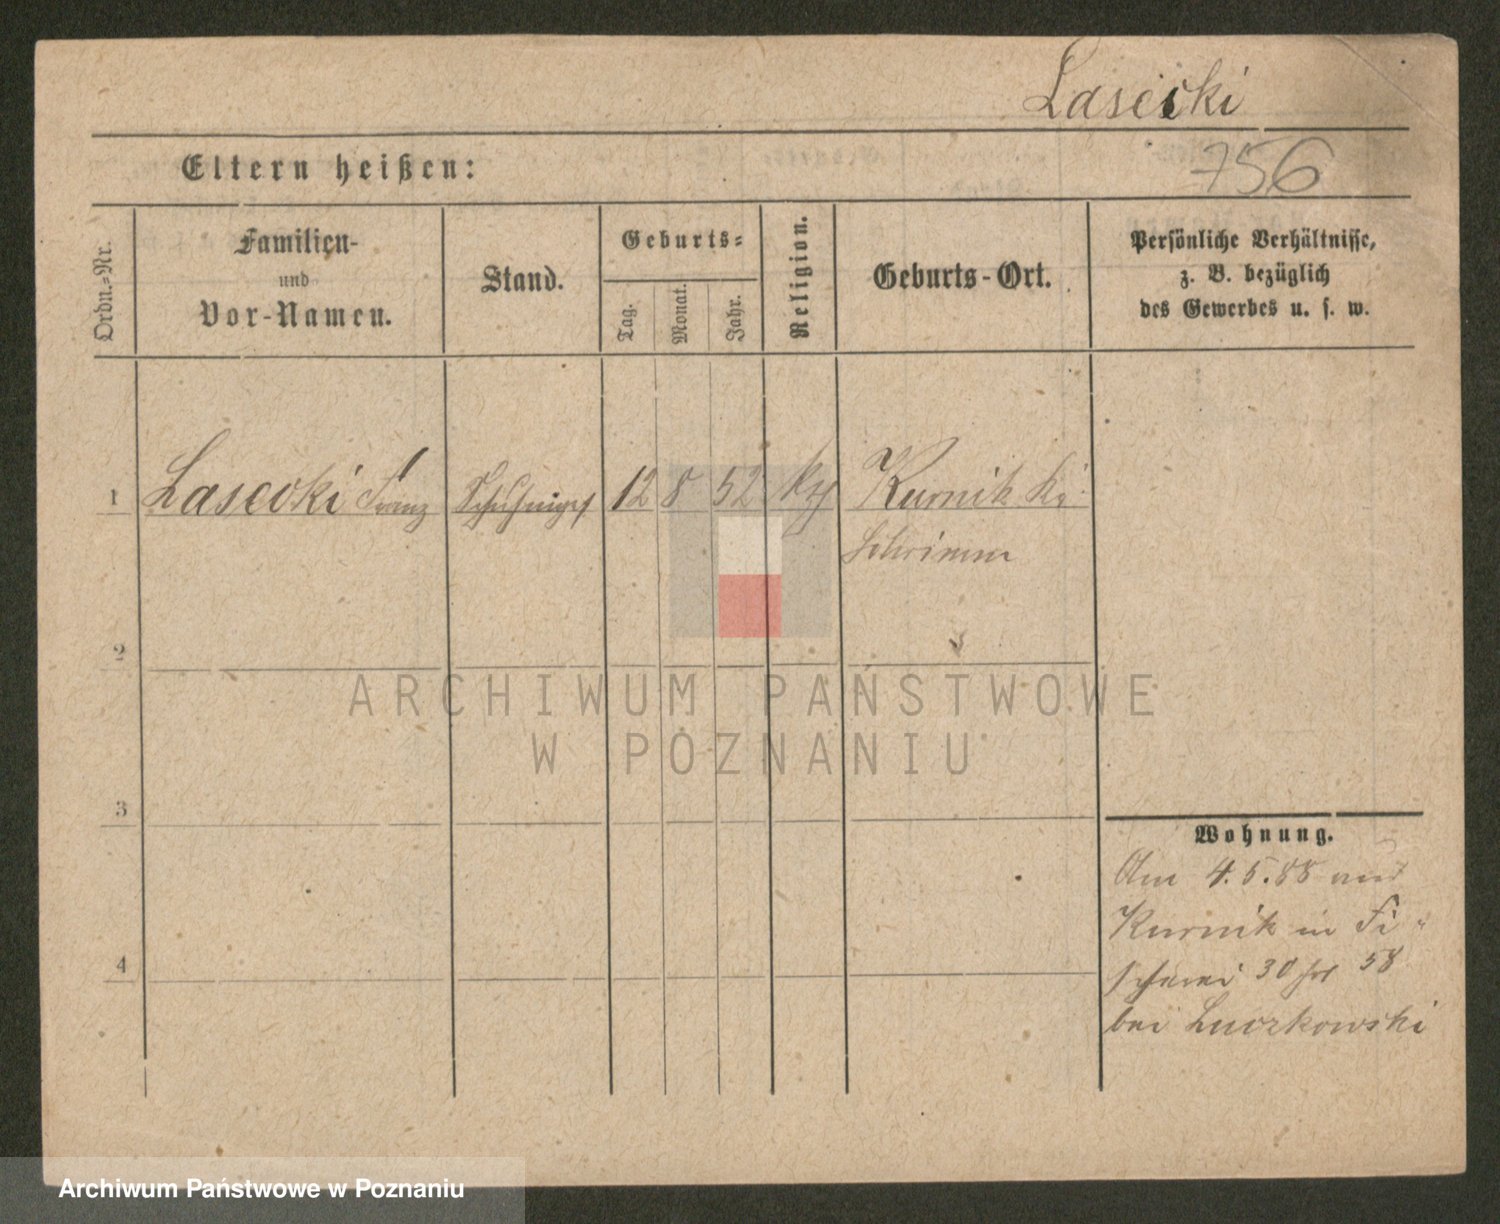 Lasecki
Eltern heißen:
756
Ordn.-Nr.
Familien-
und
Vor-Namen.
Stand.
Geburts-
Tag.
Monat.
Jahr.
Religion.
Geburts-Ort.
Persönliche Verhältnisse,
z. B. bezüglich
des Gewerbes u. s. w.
1 Lasecki Franz 12 8 52 Kurnik Kr.
Schrimm
2
ARCHIWUM PAŃSTWOWE
W POZNANIU
3
Wohnung.
Am 4.5.88 aus
Kurnik in Fi-
scherei 30 58
bei Luczkowski
4
Archiwum Państwowe w Poznaniu